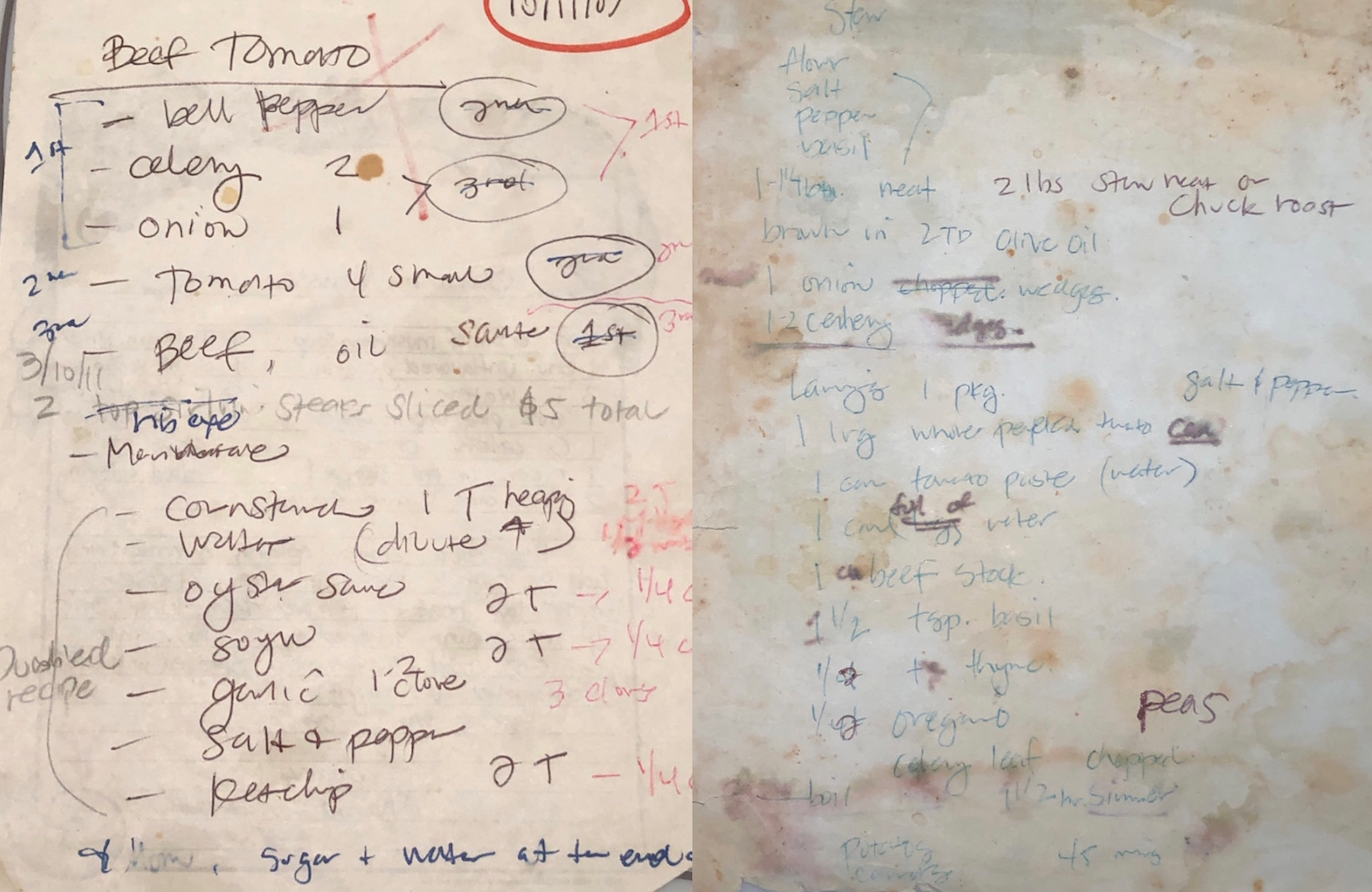 Beef Tomato
1st
- bell pepper 2nd 1st
- celery 2 3rd
- onion 1
2nd - Tomato 4 small 2nd
3rd Beef, oil saute 1st 3rd
3/10/11
2 top sirloin rib eye steaks sliced $5 total
- Marinade
- cornstarch 1 T heaping 2 T
- water (dilute ↑)
- oyster sauce 2 T → 1/4 c
- soyu 2 T → 1/4 c
Doubled recipe
- garlic 1-2 clove 3 cloves
- salt & pepper
- ketchip 2 T - 1/4 c
Mom, sugar + water at the end
Stew
flour
salt
pepper
basil
1-1 1/4 lbs. meat 2 lbs stew meat or
chuck roast
brown in 2 TB olive oil
1 onion chopped. wedges.
1-2 celery
1 pkg. salt & pepper
1 lrg whole peeled tomato can
1 can tomato paste (water)
1 can full of water
1 beef stock.
1 1/2 tsp. basil
thyme
oregano peas
celery leaf chopped
boil 1 1/2 hr. simmer
potatoes 45 mins
carrots